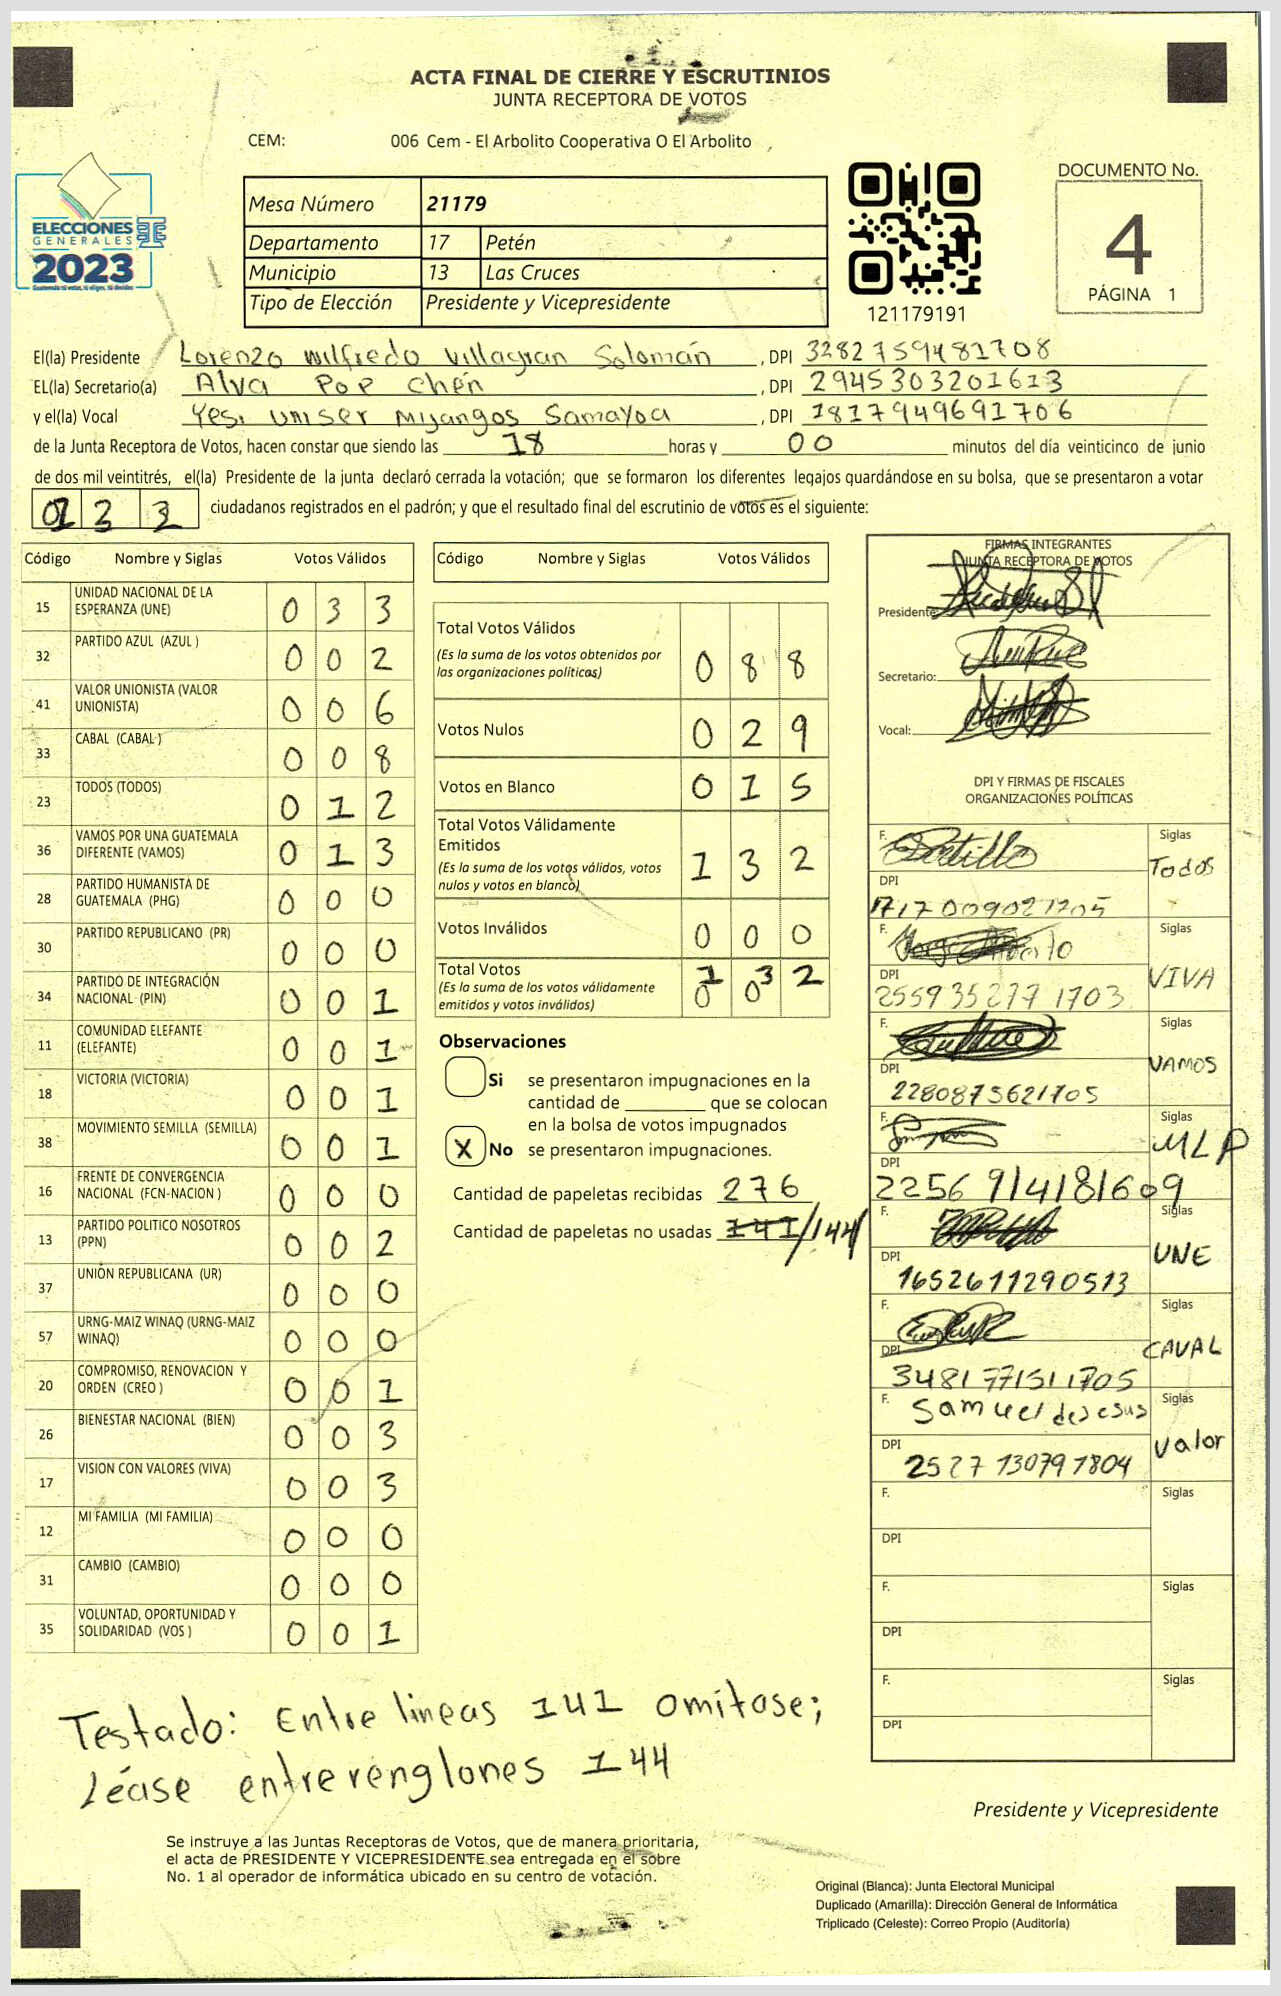 ACTA FINAL DE CIERRE Y ESCRUTINIOS
JUNTA RECEPTORA DE VOTOS
CEM: 006 Cem - El Arbolito Cooperativa O El Arbolito
ELECCIONES
GENERALES
2023
Guatemala tú votas, tú eliges, tú decides
Mesa Número 21179
Departamento 17 Petén
Municipio 13 Las Cruces
Tipo de Elección Presidente y Vicepresidente
121179191
DOCUMENTO No.
4
PÁGINA 1
El(la) Presidente Lorenzo Wilfredo Villagran Solomán, DPI 3282759481708
EL(la) Secretario(a) Alva Pop Chén, DPI 2945303201613
y el(la) Vocal Yesi Uniser Mijangos Samayoa, DPI 1817949691706
de la Junta Receptora de Votos, hacen constar que siendo las 18 horas y 00 minutos del día veinticinco de junio
de dos mil veintitrés, el(la) Presidente de la junta declaró cerrada la votación; que se formaron los diferentes legajos quardándose en su bolsa, que se presentaron a votar
ciudadanos registrados en el padrón; y que el resultado final del escrutinio de votos es el siguiente:
Código Nombre y Siglas Votos Válidos
15 UNIDAD NACIONAL DE LA ESPERANZA (UNE) 0 3 3
32 PARTIDO AZUL (AZUL ) 0 0 2
41 VALOR UNIONISTA (VALOR UNIONISTA) 0 0 6
33 CABAL (CABAL ) 0 0 8
23 TODOS (TODOS) 0 1 2
36 VAMOS POR UNA GUATEMALA DIFERENTE (VAMOS) 0 1 3
28 PARTIDO HUMANISTA DE GUATEMALA (PHG) 0 0 0
30 PARTIDO REPUBLICANO (PR) 0 0 0
34 PARTIDO DE INTEGRACIÓN NACIONAL (PIN) 0 0 1
11 COMUNIDAD ELEFANTE (ELEFANTE) 0 0 1
18 VICTORIA (VICTORIA) 0 0 1
38 MOVIMIENTO SEMILLA (SEMILLA) 0 0 1
16 FRENTE DE CONVERGENCIA NACIONAL (FCN-NACION ) 0 0 0
13 PARTIDO POLITICO NOSOTROS (PPN) 0 0 2
37 UNIÓN REPUBLICANA (UR) 0 0 0
57 URNG-MAIZ WINAQ (URNG-MAIZ WINAQ) 0 0 0
20 COMPROMISO, RENOVACION Y ORDEN (CREO ) 0 0 1
26 BIENESTAR NACIONAL (BIEN) 0 0 3
17 VISION CON VALORES (VIVA) 0 0 3
12 MI FAMILIA (MI FAMILIA) 0 0 0
31 CAMBIO (CAMBIO) 0 0 0
35 VOLUNTAD, OPORTUNIDAD Y SOLIDARIDAD (VOS ) 0 0 1
Código Nombre y Siglas Votos Válidos
Total Votos Válidos
(Es la suma de los votos obtenidos por las organizaciones políticas) 0 8 8
Votos Nulos 0 2 9
Votos en Blanco 0 1 5
Total Votos Válidamente Emitidos
(Es la suma de los votos válidos, votos nulos y votos en blanco) 1 3 2
Votos Inválidos 0 0 0
Total Votos
(Es la suma de los votos válidamente emitidos y votos inválidos) 1 3 2
Observaciones
Si se presentaron impugnaciones en la
cantidad de ________ que se colocan
en la bolsa de votos impugnados
X No se presentaron impugnaciones.
Cantidad de papeletas recibidas 276
Cantidad de papeletas no usadas 141/144/
FIRMAS INTEGRANTES
JUNTA RECEPTORA DE VOTOS
Presidente:
Secretario:
Vocal:
DPI Y FIRMAS DE FISCALES
ORGANIZACIONES POLÍTICAS
F. Siglas Todos
DPI 1717009021705
F. Siglas VIVA
DPI 2559352771703
F. Siglas VAMOS
DPI 2280875621705
F. Siglas MLP
DPI 2256914181609
F. Siglas UNE
DPI 1652611290513
F. Siglas CAVAL
DPI 3481771511705
F. Samuel de Jesus Siglas Valor
DPI 2527130791804
F. Siglas
DPI
F. Siglas
DPI
F. Siglas
DPI
Testado: Entre lineas 141 omítase;
Léase entrerenglones 144
Presidente y Vicepresidente
Se instruye a las Juntas Receptoras de Votos, que de manera prioritaria,
el acta de PRESIDENTE Y VICEPRESIDENTE sea entregada en el sobre
No. 1 al operador de informática ubicado en su centro de votación.
Original (Blanca): Junta Electoral Municipal
Duplicado (Amarilla): Dirección General de Informática
Triplicado (Celeste): Correo Propio (Auditoría)